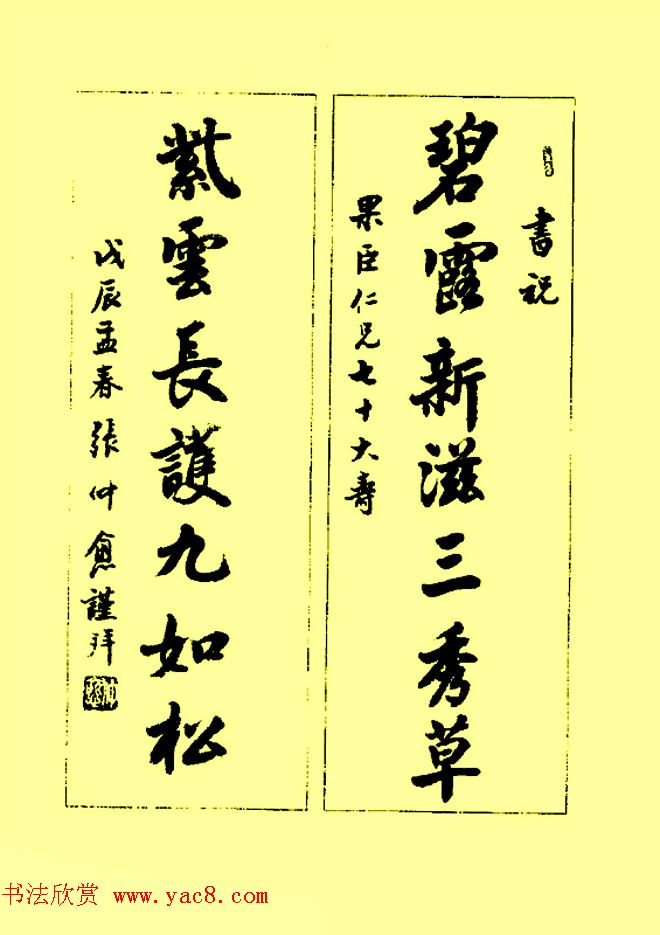 書祝
碧露新滋三秀草
果臣仁兄七十大壽
紫雲長護九如松
戊辰孟春張仲愈謹拜
书法欣赏 www.yac8.com